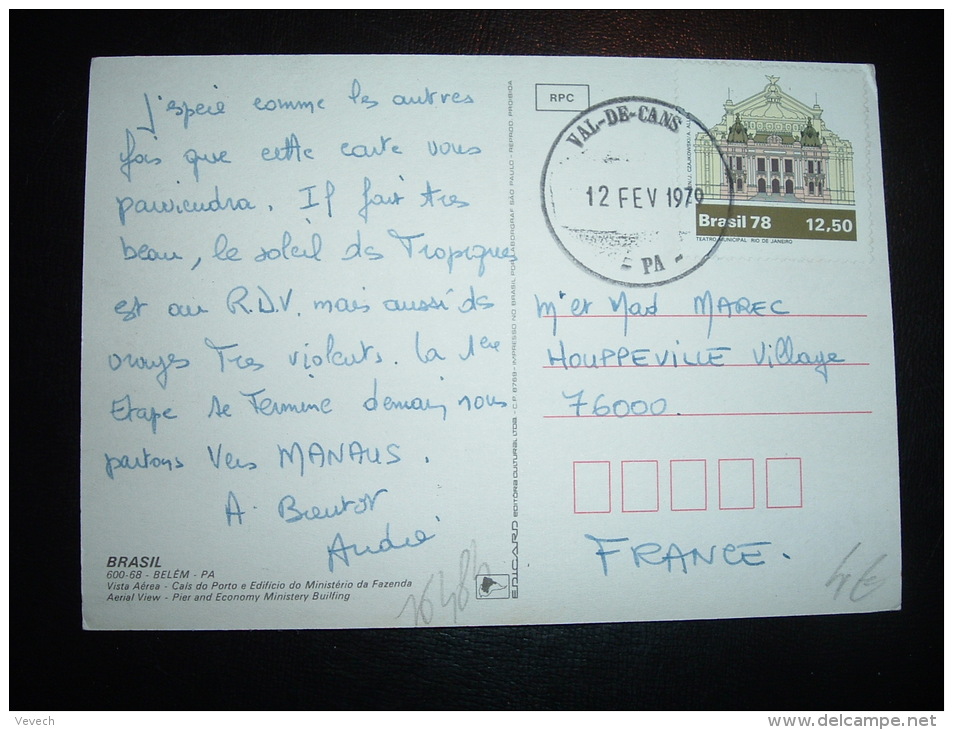 J'espère comme les autres
fois que cette carte vous
parviendra. Il fait très
beau, le soleil des Tropiques
est au R.D.V. mais aussi des
orages Très violents. La 1ère
Etape se Termine demain, nous
partons Vers MANAUS.
A. Bientôt
André
BRASIL
600-68 - BELÉM - PA
Vista Aérea - Cais do Porto e Edifício do Ministério da Fazenda
Aerial View - Pier and Economy Ministery Builfing
16484
EDICARD EDITORA CULTURAL LTDA. - C.P. 8769 - IMPRESSO NO BRASIL POR LABORGRAF SÃO PAULO - REPROD. PROIBIDA
RPC
VAL-DE-CANS
12 FEV 1979
- PA -
Brasil 78 12,50
TEATRO MUNICIPAL RIO DE JANEIRO
Mr et Mad MAREC
HOUPPEVILLE Village
76000.
FRANCE.
4€
Vevech
www.delcampe.net